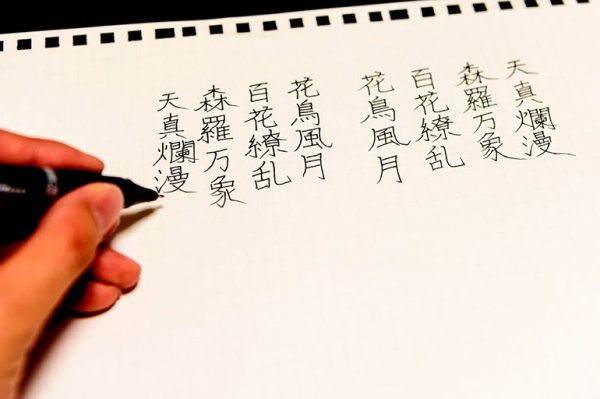 天真爛漫
森羅万象
百花繚乱
花鳥風月
花鳥風月
百花繚乱
森羅万象
天真爛漫